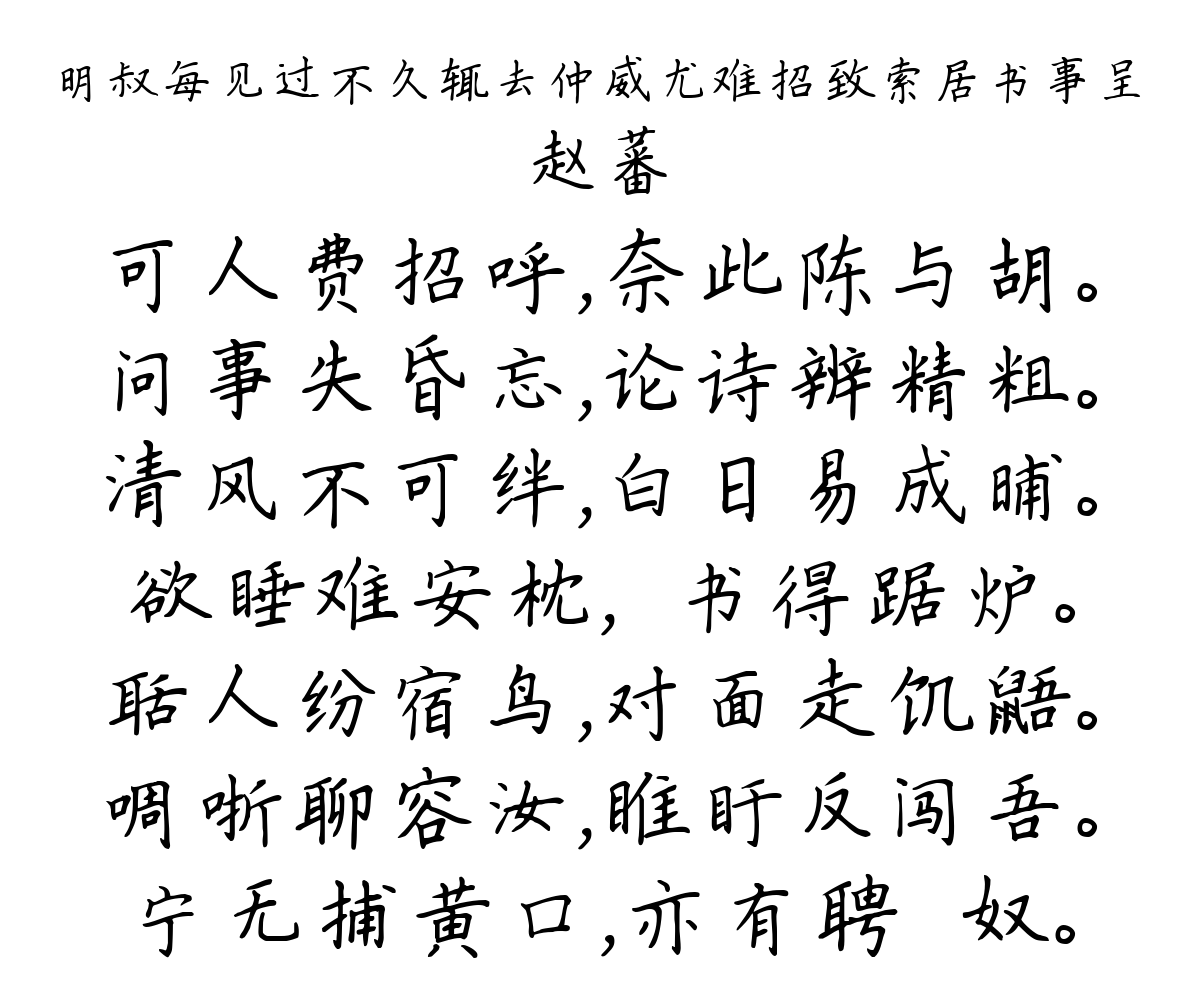 明叔每见过不久辄去仲威尤难招致索居书事呈
赵蕃
可人费招呼,奈此陈与胡。
问事失昏忘,论诗辨精粗。
清风不可绊,白日易成晡。
欲睡难安枕, 书得踞炉。
聒人纷宿鸟,对面走饥鼯。
啁哳聊容汝,睢盱反闯吾。
宁无捕黄口,亦有聘 奴。